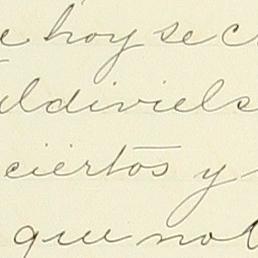 e hoy se c
aldiviels
ciertos y
que not